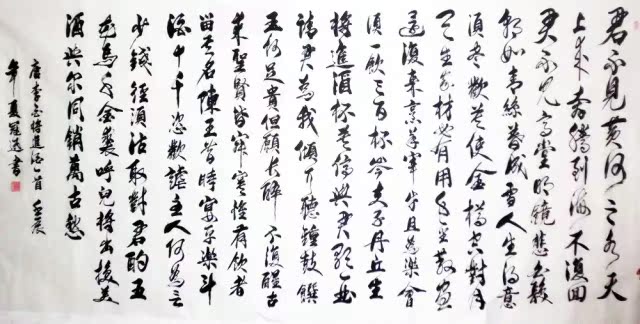 君不見黃河之水天
上來奔騰到海不復回
君不見高堂明鏡悲白髮
朝如青絲暮成雪人生得意
須盡歡莫使金樽空對月
天生我材必有用千金散盡
還復來烹羊宰牛且為樂會
須一飲三百杯岑夫子丹丘生
將進酒杯莫停與君歌一曲
請君為我傾耳聽鐘鼓饌
玉何足貴但願長醉不復醒古
來聖賢皆寂寞惟有飲者
留其名陳王昔時宴平樂斗
酒十千恣歡謔主人何為言
少錢徑須沽取對君酌五
花馬千金裘呼兒將出換美
酒與爾同銷萬古愁
唐李白將進酒一首壬辰
年夏書